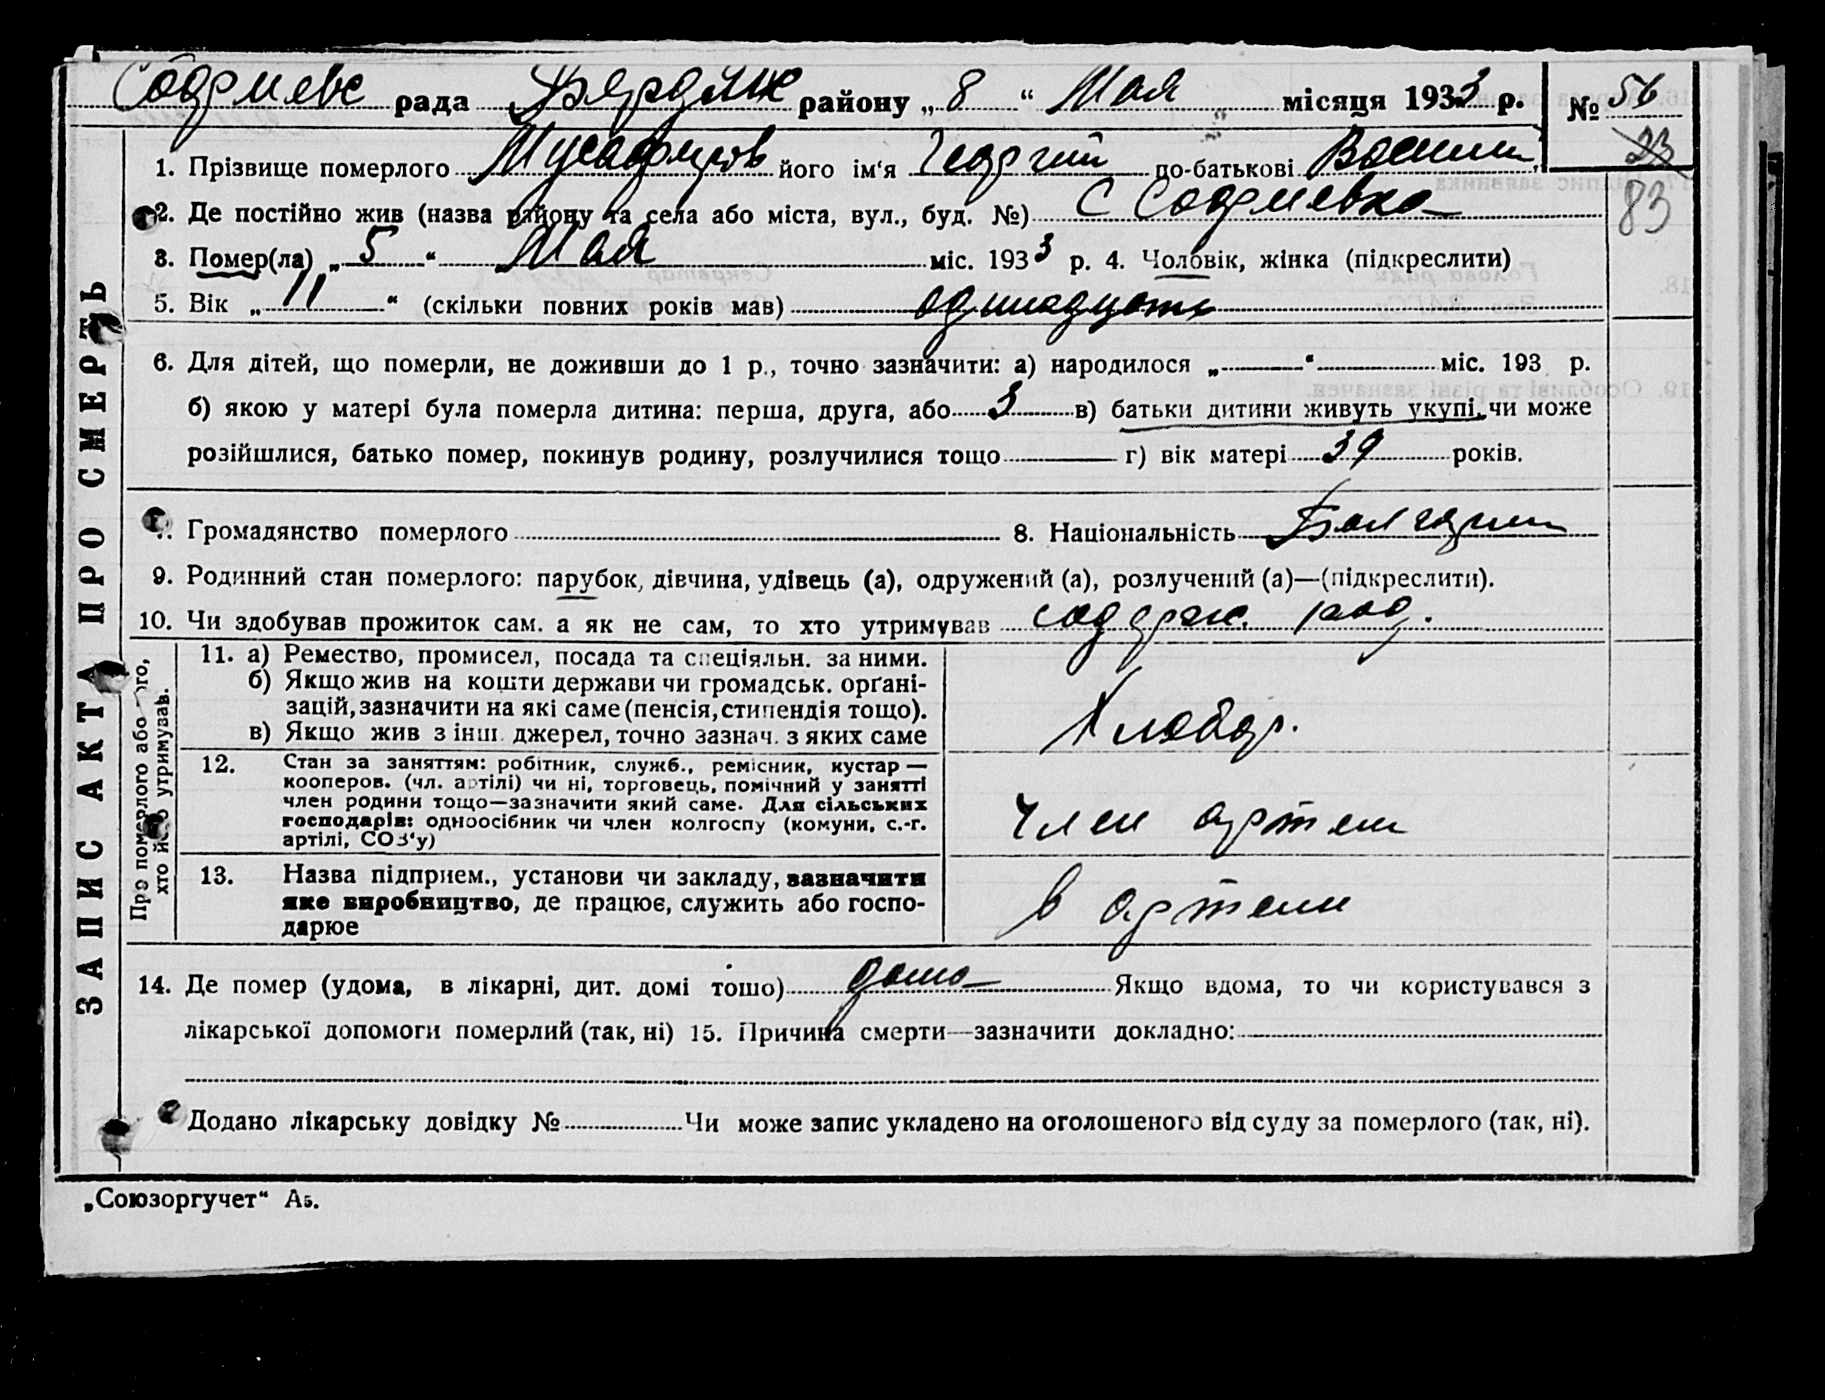 Софиевс рада Бердянск району „8“ Мая місяця 1933 р. № 56
23
1. Прізвище померлого Мусафиров його ім‘я Георгий по-батькові Васили
83
2. Де постійно жив (назва району та села або міста, вул., буд. №) С Софиевка
3. Помер(ла) „5“ Мая міс. 1933 р. 4. Чоловік, жінка (підкреслити)
5. Вік „11“ (скільки повних років мав) одинадцать
6. Для дітей, що померли, не доживши до 1 р., точно зазначити: а) народилося „ “ міс. 193 р.
б) якою у матері була померла дитина: перша, друга, або 3 в) батьки дитини живуть укупі, чи може
розійшлися, батько помер, покинув родину, розлучилися тощо г) вік матері 39 років.
Громадянство померлого 8. Національність Болгарин
9. Родинний стан померлого: парубок, дівчина, удівець (а), одружений (а), розлучений (а)—(підкреслити).
10. Чи здобував прожиток сам. а як не сам, то хто утримував содерж. род.
11. а) Ремество, промисел, посада та спеціяльн. за ними.
б) Якщо жив на кошти держави чи громадськ. орґані-
зацій, зазначити на які саме (пенсія, стипендія тощо).
в) Якщо жив з інш. джерел, точно зазнач. з яких саме
Хлебор.
12. Стан за заняттям: робітник, служб., ремісник, кустар —
кооперов. (чл. артілі) чи ні, торговець, помічний у занятті
член родини тощо—зазначити який саме. Для сільських
господарів: одноосібник чи член колгоспу (комуни, с.-г.
артілі, СОЗ‘у)
член артели
13. Назва підприєм., установи чи закладу, зазначити
яке виробництво, де працює, служить або госпо-
дарює
в артели
14. Де помер (удома, в лікарні, дит. домі тощо) дома Якщо вдома, то чи користувався з
лікарської допомоги померлий (так, ні) 15. Причина смерти—зазначити докладно:
Додано лікарську довідку № Чи може запис укладено на оголошеного від суду за померлого (так, ні).
„Союзоргучет“ А5.
ЗАПИС АКТА ПРО СМЕРТЬ
Про померлого або того,
хто його утримував.